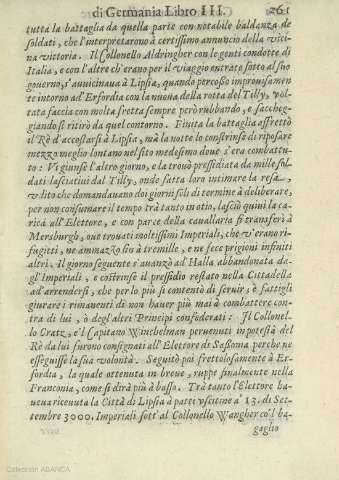 di Germania Libro III. 261
tutta la battaglia da quella parte con notabile baldanza de
soldati, che l'interpretarono à certissimo annuncio della vici
na vittoria. Il Collonello Aldringher con le genti condotte di
Italia, e con l'altre ch'erano per il viaggio entrate sotto al suo
governo, s'avvicinava à Lipsia, quando percosso improvisamen
te intorno ad Erfordia con la nuova della rotta del Tilly, vol-
tata faccia con molta fretta sempre però rubbando, e saccheg-
giando si ritirò da quel contorno. Finita la battaglia affrettò
il Rè d'accostarsi à Lipsia, mà la notte lo constrinse di riposare
mezzo meglio lontano nel sito medesimo dove s'era combattu-
to: Vi giunse l'altro giorno, e la trovò pressidiata da mille sol-
dati lasciativi dal Tilly, onde fatta loro intimare la resa,
& udito che domandavano doi giorni soli di termine à deliberare,
per non consumare il tempo trà tanto in otio, lasciò quivi la ca-
rica all'Elettore, e con parte della cavallaria si transferì à
Mersburgh, ove trovati moltissimi Imperiali, che v'erano ri-
fugitti, ne ammazzò fin à tremille, e ne fece prigioni infiniti
altri. Il giorno seguente s'avanzò ad Halla abbandonata da-
gl'Imperiali, e costrinse il pressidio restato nella Cittadella
ad arrendersi, che per lo più si contentò di servir, e fattigli
giurare i rimanenti di non haver più mai à combattere con-
tra di lui, ò degl'altri Principi confederati: Il Collonel-
lo Cratz, e'l Capitano Winchelman pervenuti in potestà del
Rè da lui furono consignati all'Elettore di Sassonia perche ne
esseguisse la sua volontà. Seguitò poi frettolosamente à Er-
fordia, la quale ottenuta in breve, ruppe finalmente nella
Franconia, come si dirà più à basso. Trà tanto l'Elettore ha-
veva ricevuta la Città di Lipsia à patti uscitine a' 13. di Set-
tembre 3000. Imperiali sott'al Collonello Wangher co'l ba-
gaglio
Colección ABANCA